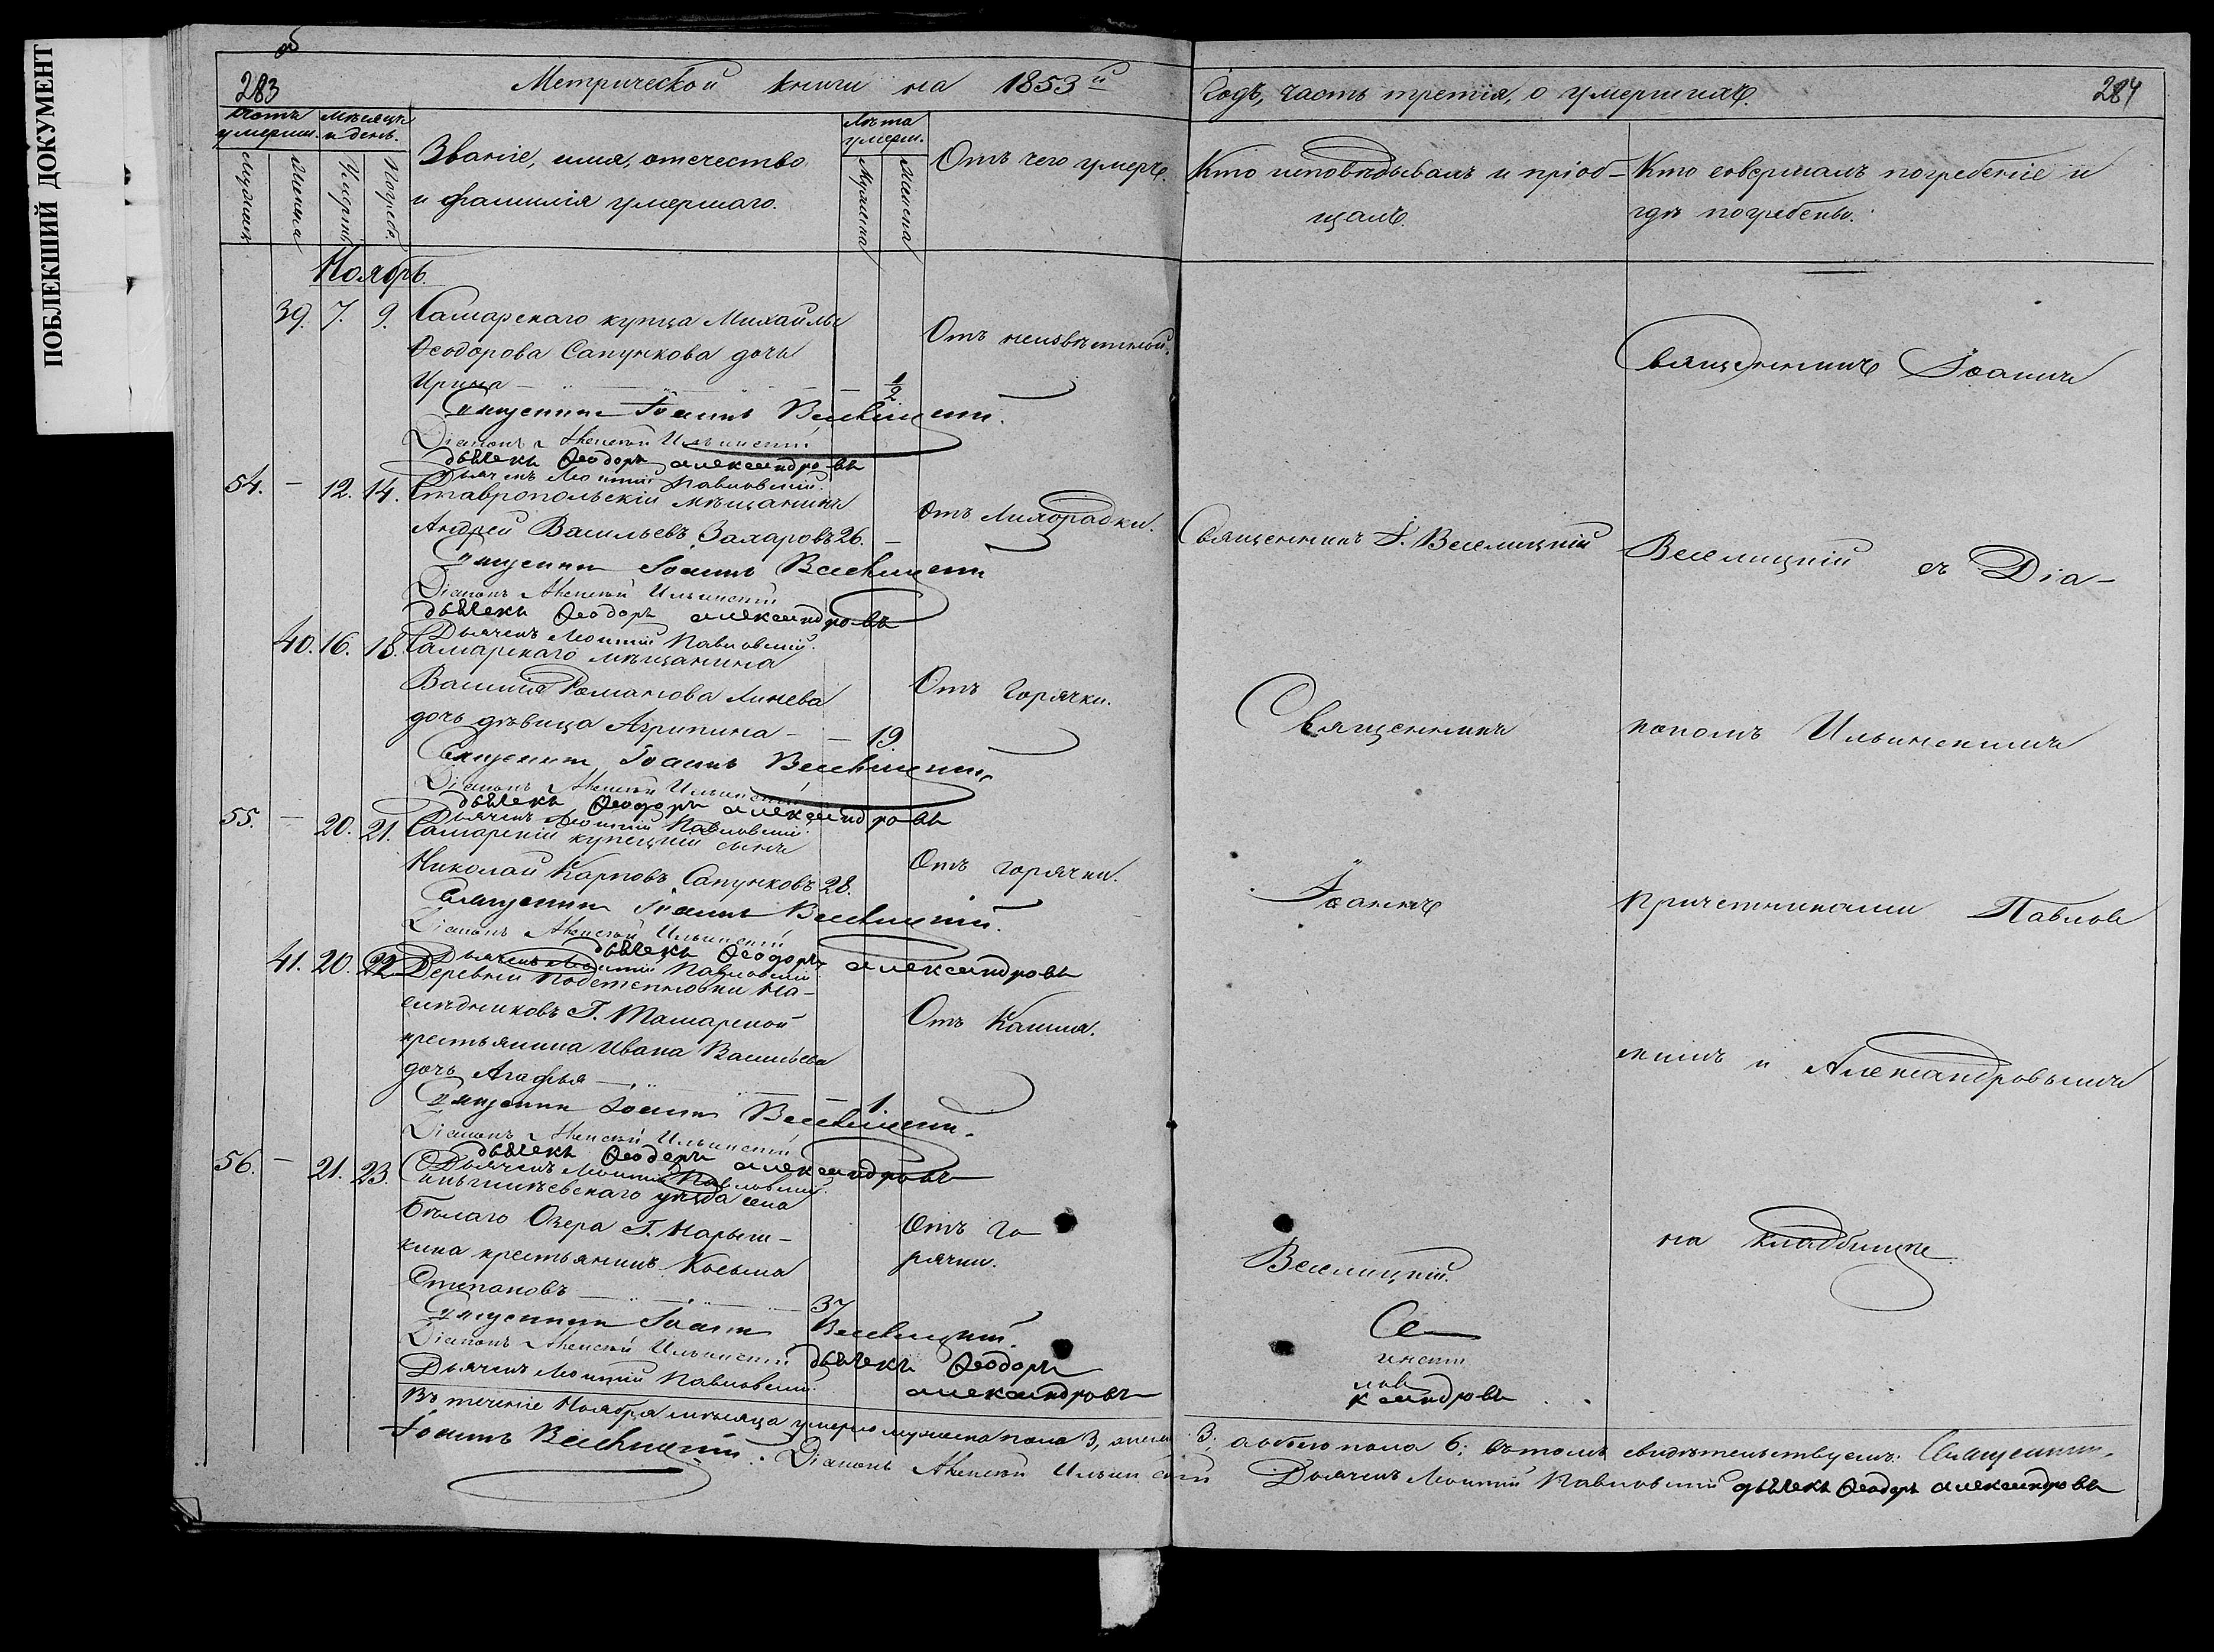 ПОБЛЕКШИЙ ДОКУМЕНТ
об
283
Метрической книги на 1853й
Счетъ умерш.
Мѣсяцъ и день.
Мужеск.
Женска
Смерть
Погреб.
Званіе, имя, отечество
и фамилія умершаго.
Лѣта умерш.
Мужеска
Женска
Отъ чего умеръ.
Ноябрь.
39. 7. 9. Самарскаго купца Михайлы
Ѳеодорова Сапункова дочь
Ирина 1/2
Отъ неизвѣстной.
Священникъ Іоаннъ Веселицкій.
Діаконъ Алексѣй Ильинскій
дьячекъ Ѳеодоръ александровъ
Дьячекъ Павловскій.
54. – 12. 14. Ставропольскій мѣщанинъ
Андрей Васильевъ Захаровъ 26. –
Отъ Лихорадки.
Священникъ Іоаннъ Веселицкій
Діаконъ Алексѣй Ильинскій
дьячекъ Ѳеодоръ александровъ
Дьячекъ Павловскій.
40. 16. 18. Самарскаго мѣщанина
Василія Романова Линева
дочь дѣвица Агрипина – – 19.
Отъ Горячки.
Священникъ Іоаннъ Веселицкій.
Діаконъ Алексѣй Ильинскій
дьячекъ Ѳеодоръ александровъ
Дьячекъ Павловскій.
55. – 20. 21. Самарскій купецкій сынъ
Николай Карповъ Сапунковъ 28.
Отъ горячки.
Священникъ Іоаннъ Веселицкій.
Діаконъ Алексѣй Ильинскій
дьячекъ Ѳеодоръ александровъ
Дьячекъ Павловскій
41. 20. 22. Деревни Подстепновки На-
слѣдниковъ Г.
крестьянина Ивана Васильева
дочь Агафья 1.
Отъ Кашля.
Священникъ Іоаннъ Веселицкій.
Діаконъ Алексѣй Ильинскій
дьячекъ Ѳеодоръ александровъ
Дьячекъ Павловскій.
56. – 21. 23. уѣзда села
Бѣлаго Озера Г. Нарыш-
кина крестьянинъ Косьма
Степановъ 37
Отъ го
рячки.
Священникъ Іоаннъ Веселицкій.
Діаконъ Алексѣй Ильинскій
дьячекъ Ѳеодоръ
александровъ
Дьячекъ Павловскій.
Въ теченіе Ноября мѣсяца умерло мужеска пола 3, женска
Іоаннъ Веселицкій. Діаконъ Алексѣй Ильинскій
Годъ, часть третія, о умершихъ.
284
Кто исповѣдывалъ и пріоб-
щалъ.
Кто совершалъ погребеніе и
гдѣ погребены.
Священникъ І. Веселицкій
Священникъ
Іоаннъ
Веселицкій.
Священникъ Іоаннъ
Веселицкій съ Діа-
кономъ Ильинскимъ
причетниками Павлов
скимъ и Александровымъ
на кладбищѣ
Се
инскій
лов
ксандровъ
3; а обоего пола 6; въ томъ свидѣтельствуемъ: Священникъ
Дьячекъ Павловскій дьячекъ Ѳеодоръ александровъ